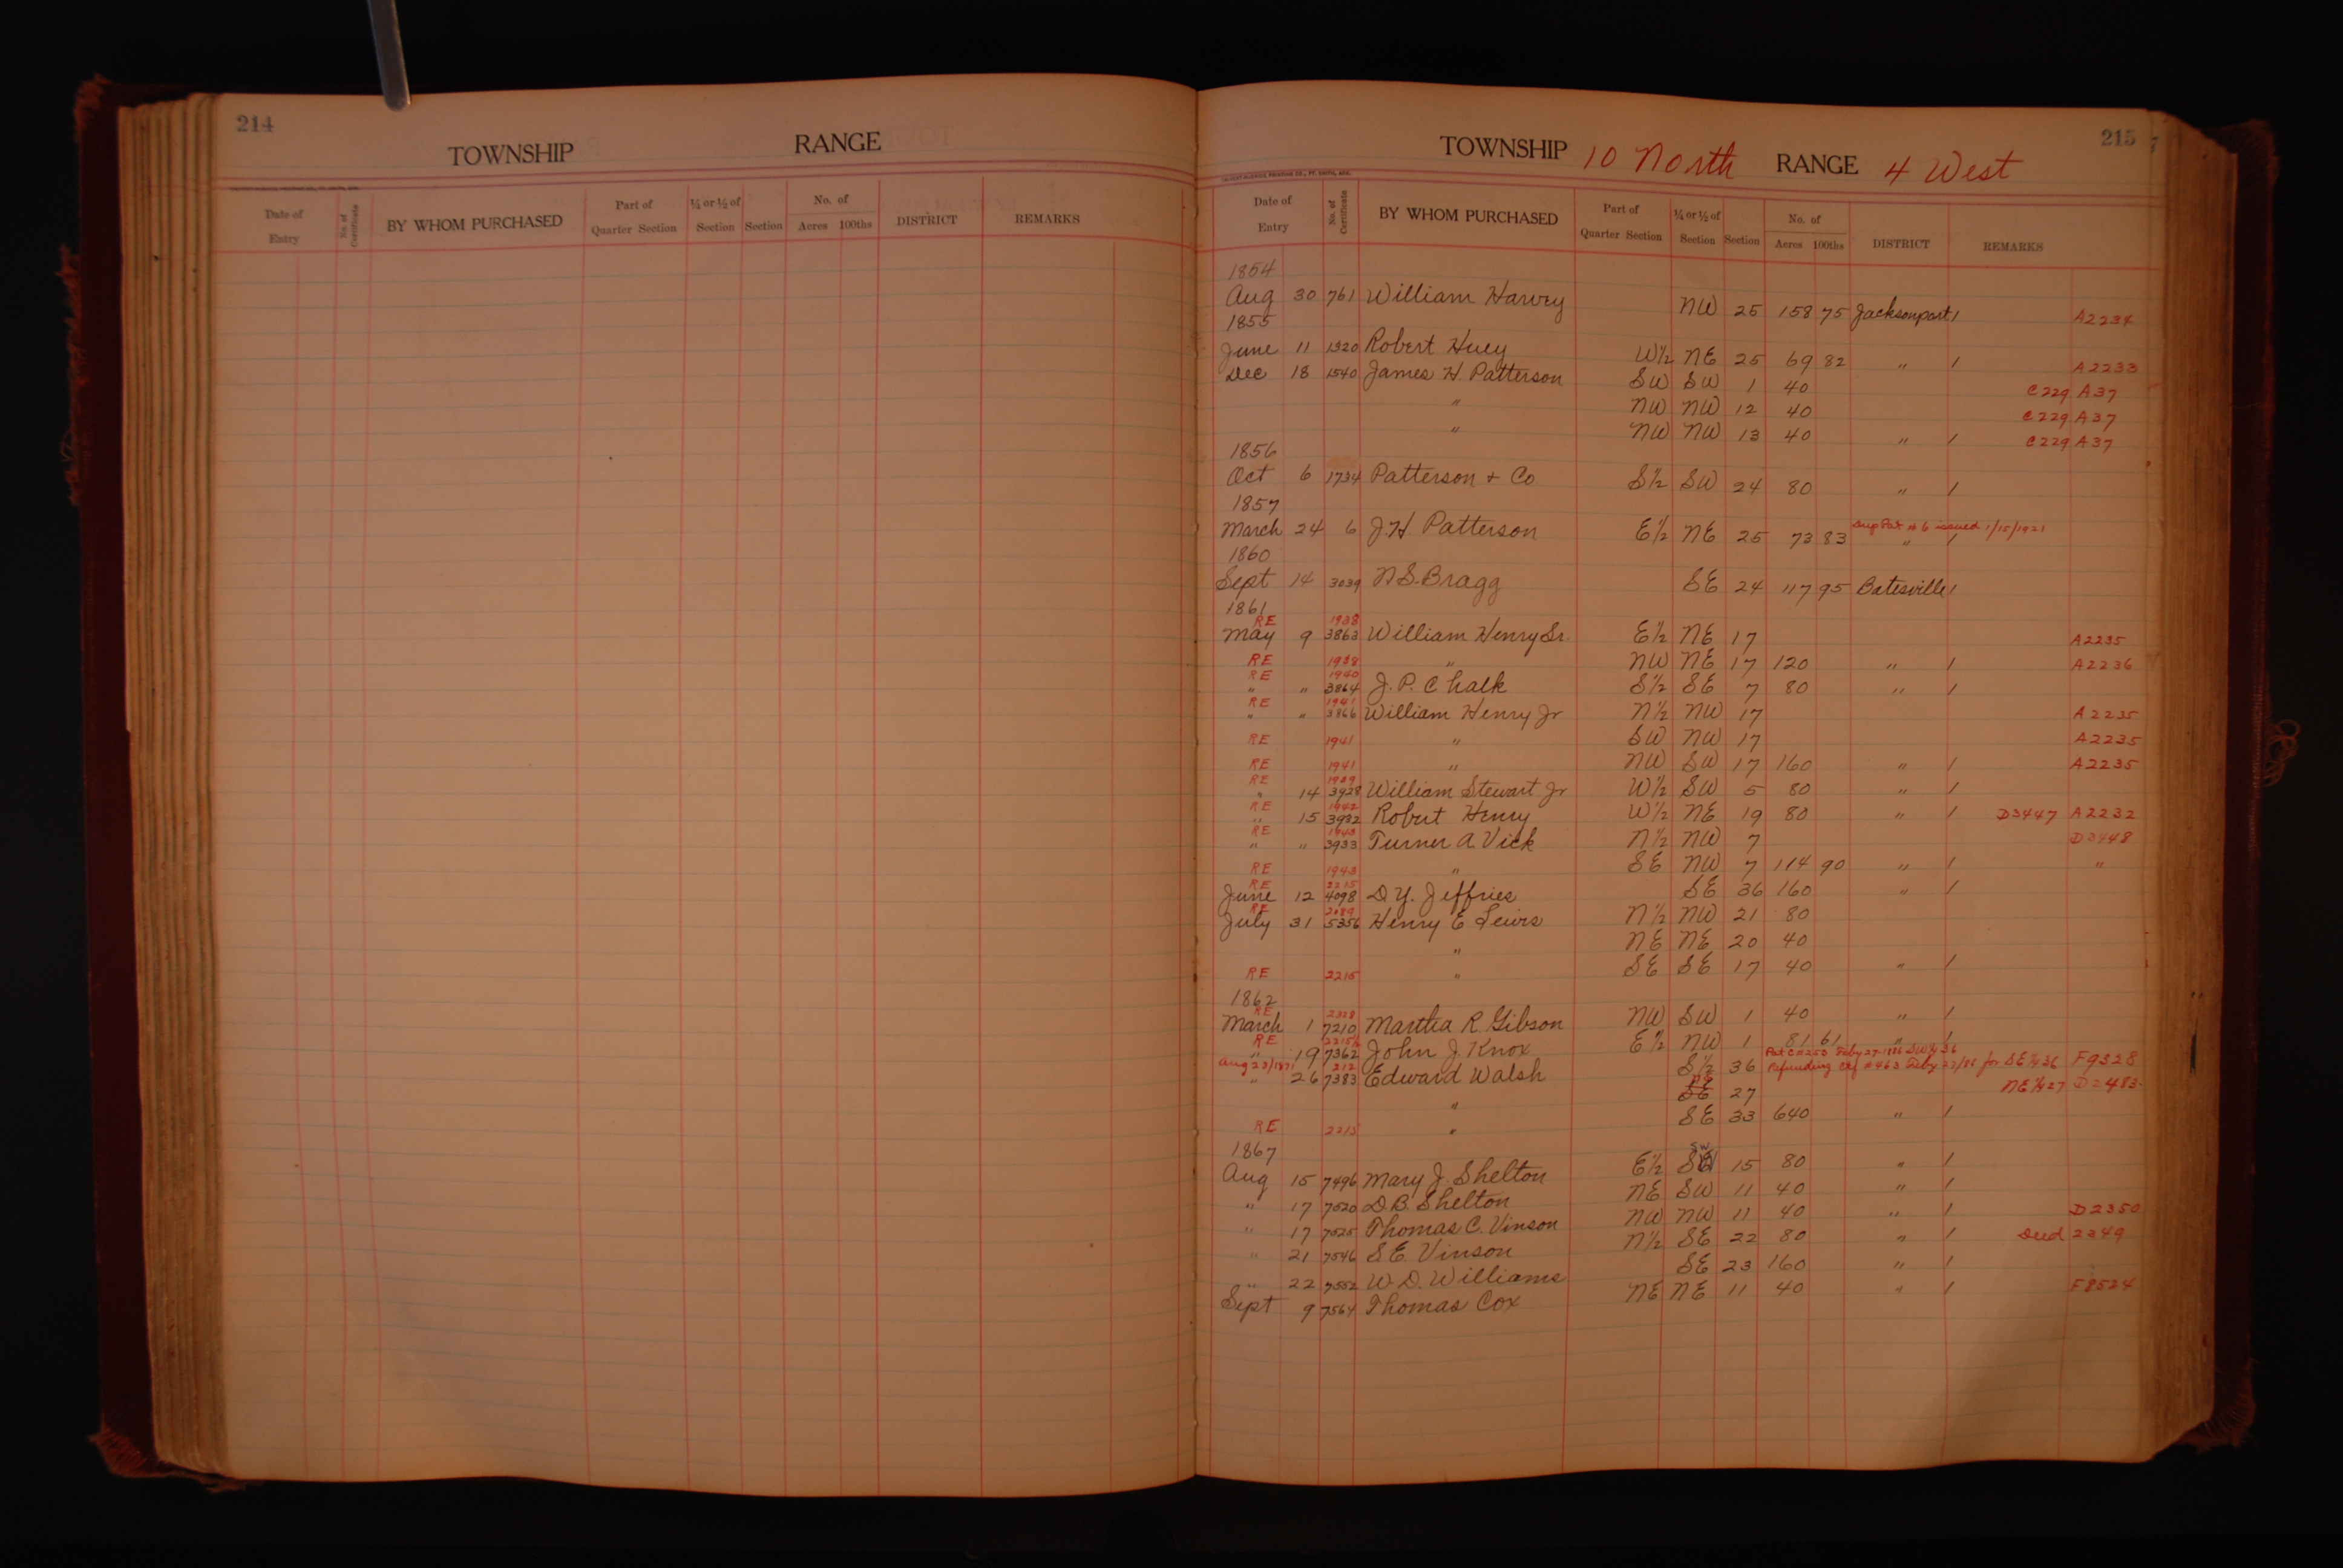 214
TOWNSHIP RANGE
Date of Entry No. of Certificate BY WHOM PURCHASED Part of Quarter Section ¼ or ½ of Section Section No. of Acres 100ths DISTRICT REMARKS
215
TOWNSHIP 10 North RANGE 4 West
Date of Entry No. of Certificate BY WHOM PURCHASED Part of Quarter Section ¼ or ½ of Section Section No. of Acres 100ths DISTRICT REMARKS
1854
Aug 30 761 William Harvey NW 25 158 75 Jacksonport / A2234
1855
June 11 1320 Robert Huey W½ NE 25 69 82 " / A2233
Dec 18 1540 James H. Patterson SW SW 1 40 C229 A37
" NW NW 12 40 C229 A37
" NW NW 13 40 " / C229 A37
1856
Oct 6 1734 Patterson + Co S½ SW 24 80 " /
1857
Sup Pat # 6 issued 1/15/1921
March 24 6 J.H. Patterson E½ NE 25 73 83 " /
1860
Sept 14 3039 N.S. Bragg SE 24 117 95 Batesville /
1861
RE 1938
May 9 3863 William Henry Sr. E½ NE 17 A2235
RE 1938 " NW NE 17 120 " / A2236
RE 1940
" " 3864 J. P. Chalk S½ SE 7 80 " /
RE 1941
" " 3866 William Henry Jr N½ NW 17 A2235
RE 1941 " SW NW 17 A2235
RE 1941 " NW SW 17 160 " / A2235
RE 1939
" 14 3928 William Stewart Jr W½ SW 5 80 " /
RE 1942
" 15 3932 Robert Henry W½ NE 19 80 " / D3447 A2232
RE 1943
" " 3933 Turner A. Vick N½ NW 7 D3448
RE 1943 " SE NW 7 114 90 " / "
RE 2215
June 12 4098 D.Y. Jeffries SE 36 160 " /
RE 2089
July 31 5356 Henry E Lewis N½ NW 21 80
" NE NE 20 40
RE 2215 " SE SE 17 40 " /
1862
RE 2328
March 1 7210 Martha R. Gibson NW SW 1 40 " /
RE 2215½
" 19 7362 John J. Knox E½ NW 1 81 61 " /
Aug 23/1871 212 Pat C #253 Feby 27-1886 SW¼ 36
" 26 7383 Edward Walsh S½ 36 Refunding Ctf #463 Feby 27/85 for SE¼ 36 F9328
" NE SE 27 NE¼ 27 D2483
RE 2215 " SE 33 640 " /
1867
Aug 15 7496 Mary J. Shelton E½ SW 15 80 " /
" 17 7520 D.B. Shelton NE SW 11 40 " /
" 17 7525 Thomas C. Vinson NW NW 11 40 " / D2350
" 21 7546 S.E. Vinson N½ SE 22 80 " / Deed 2349
" 22 7552 W.D. Williams SE 23 160 " /
Sept 9 7564 Thomas Cox NE NE 11 40 " / F8524